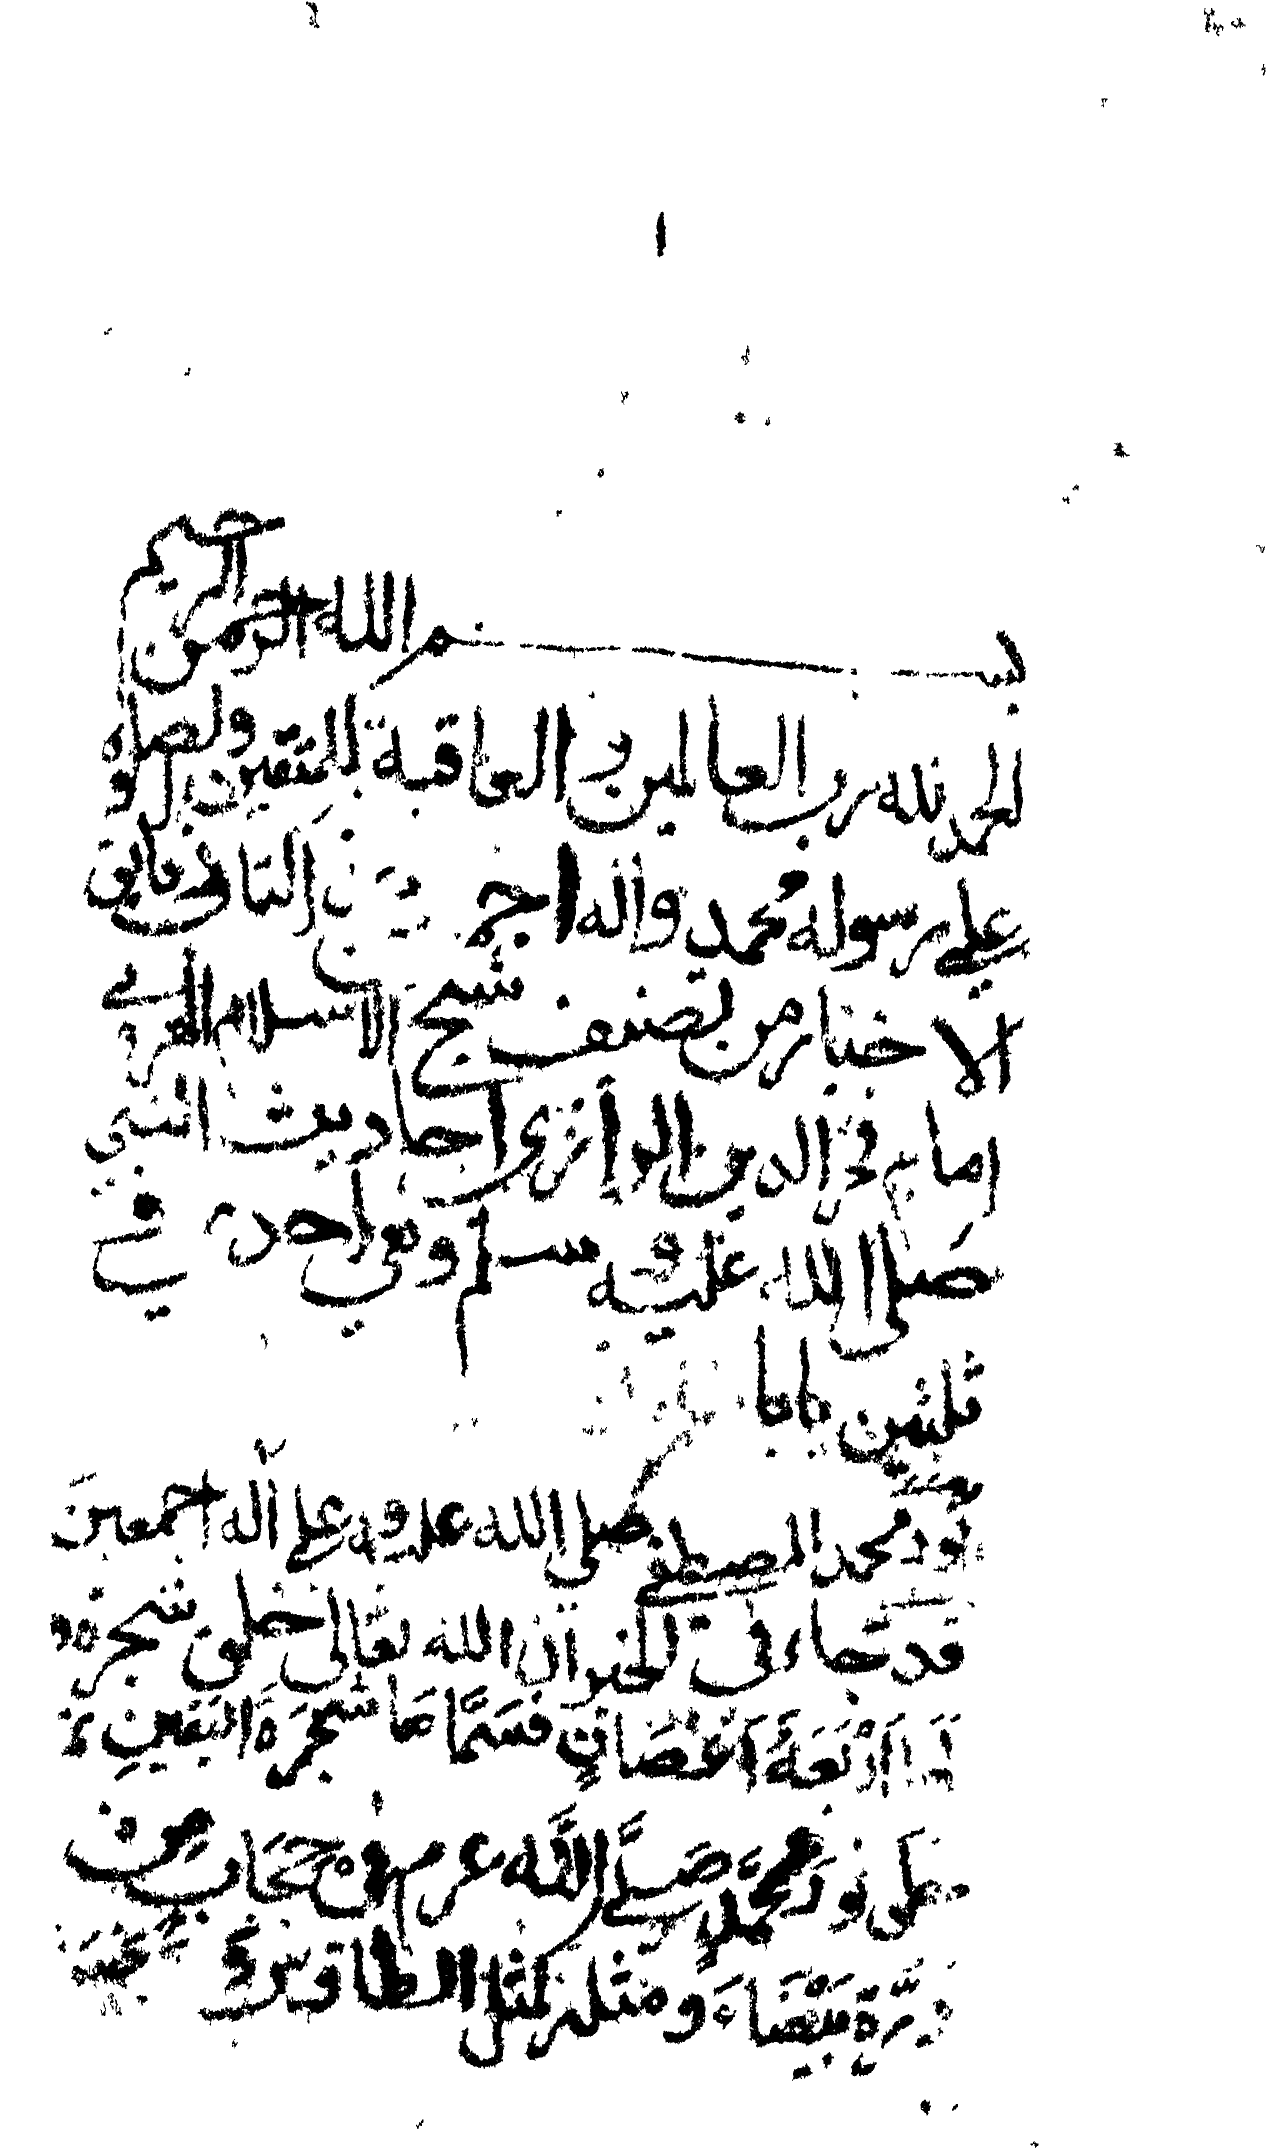 ١
بسم الله الرحمن الرحيم
الحمد لله رب العالمين و العاقبة للمتقين ولصلاه و
علي رسوله محمد واله اجمعين دقايق
الاخبار من تصنف شيخ الاسلام
امام فخر الدين احاديث النبي
صلى الله عليه وسلم وهي احدى في
ثلثين بابا
نور محمد المصطفى صلى الله عليه و على آله اجمعين
قد جاء في الخبر ان الله تعالى خلق شجرة و
لها اربعة اغصان فسماها شجرة اليقين
خلق نور محمد صلى الله في حجاب من
درة بيضاء و مثله كمثل الطاوس